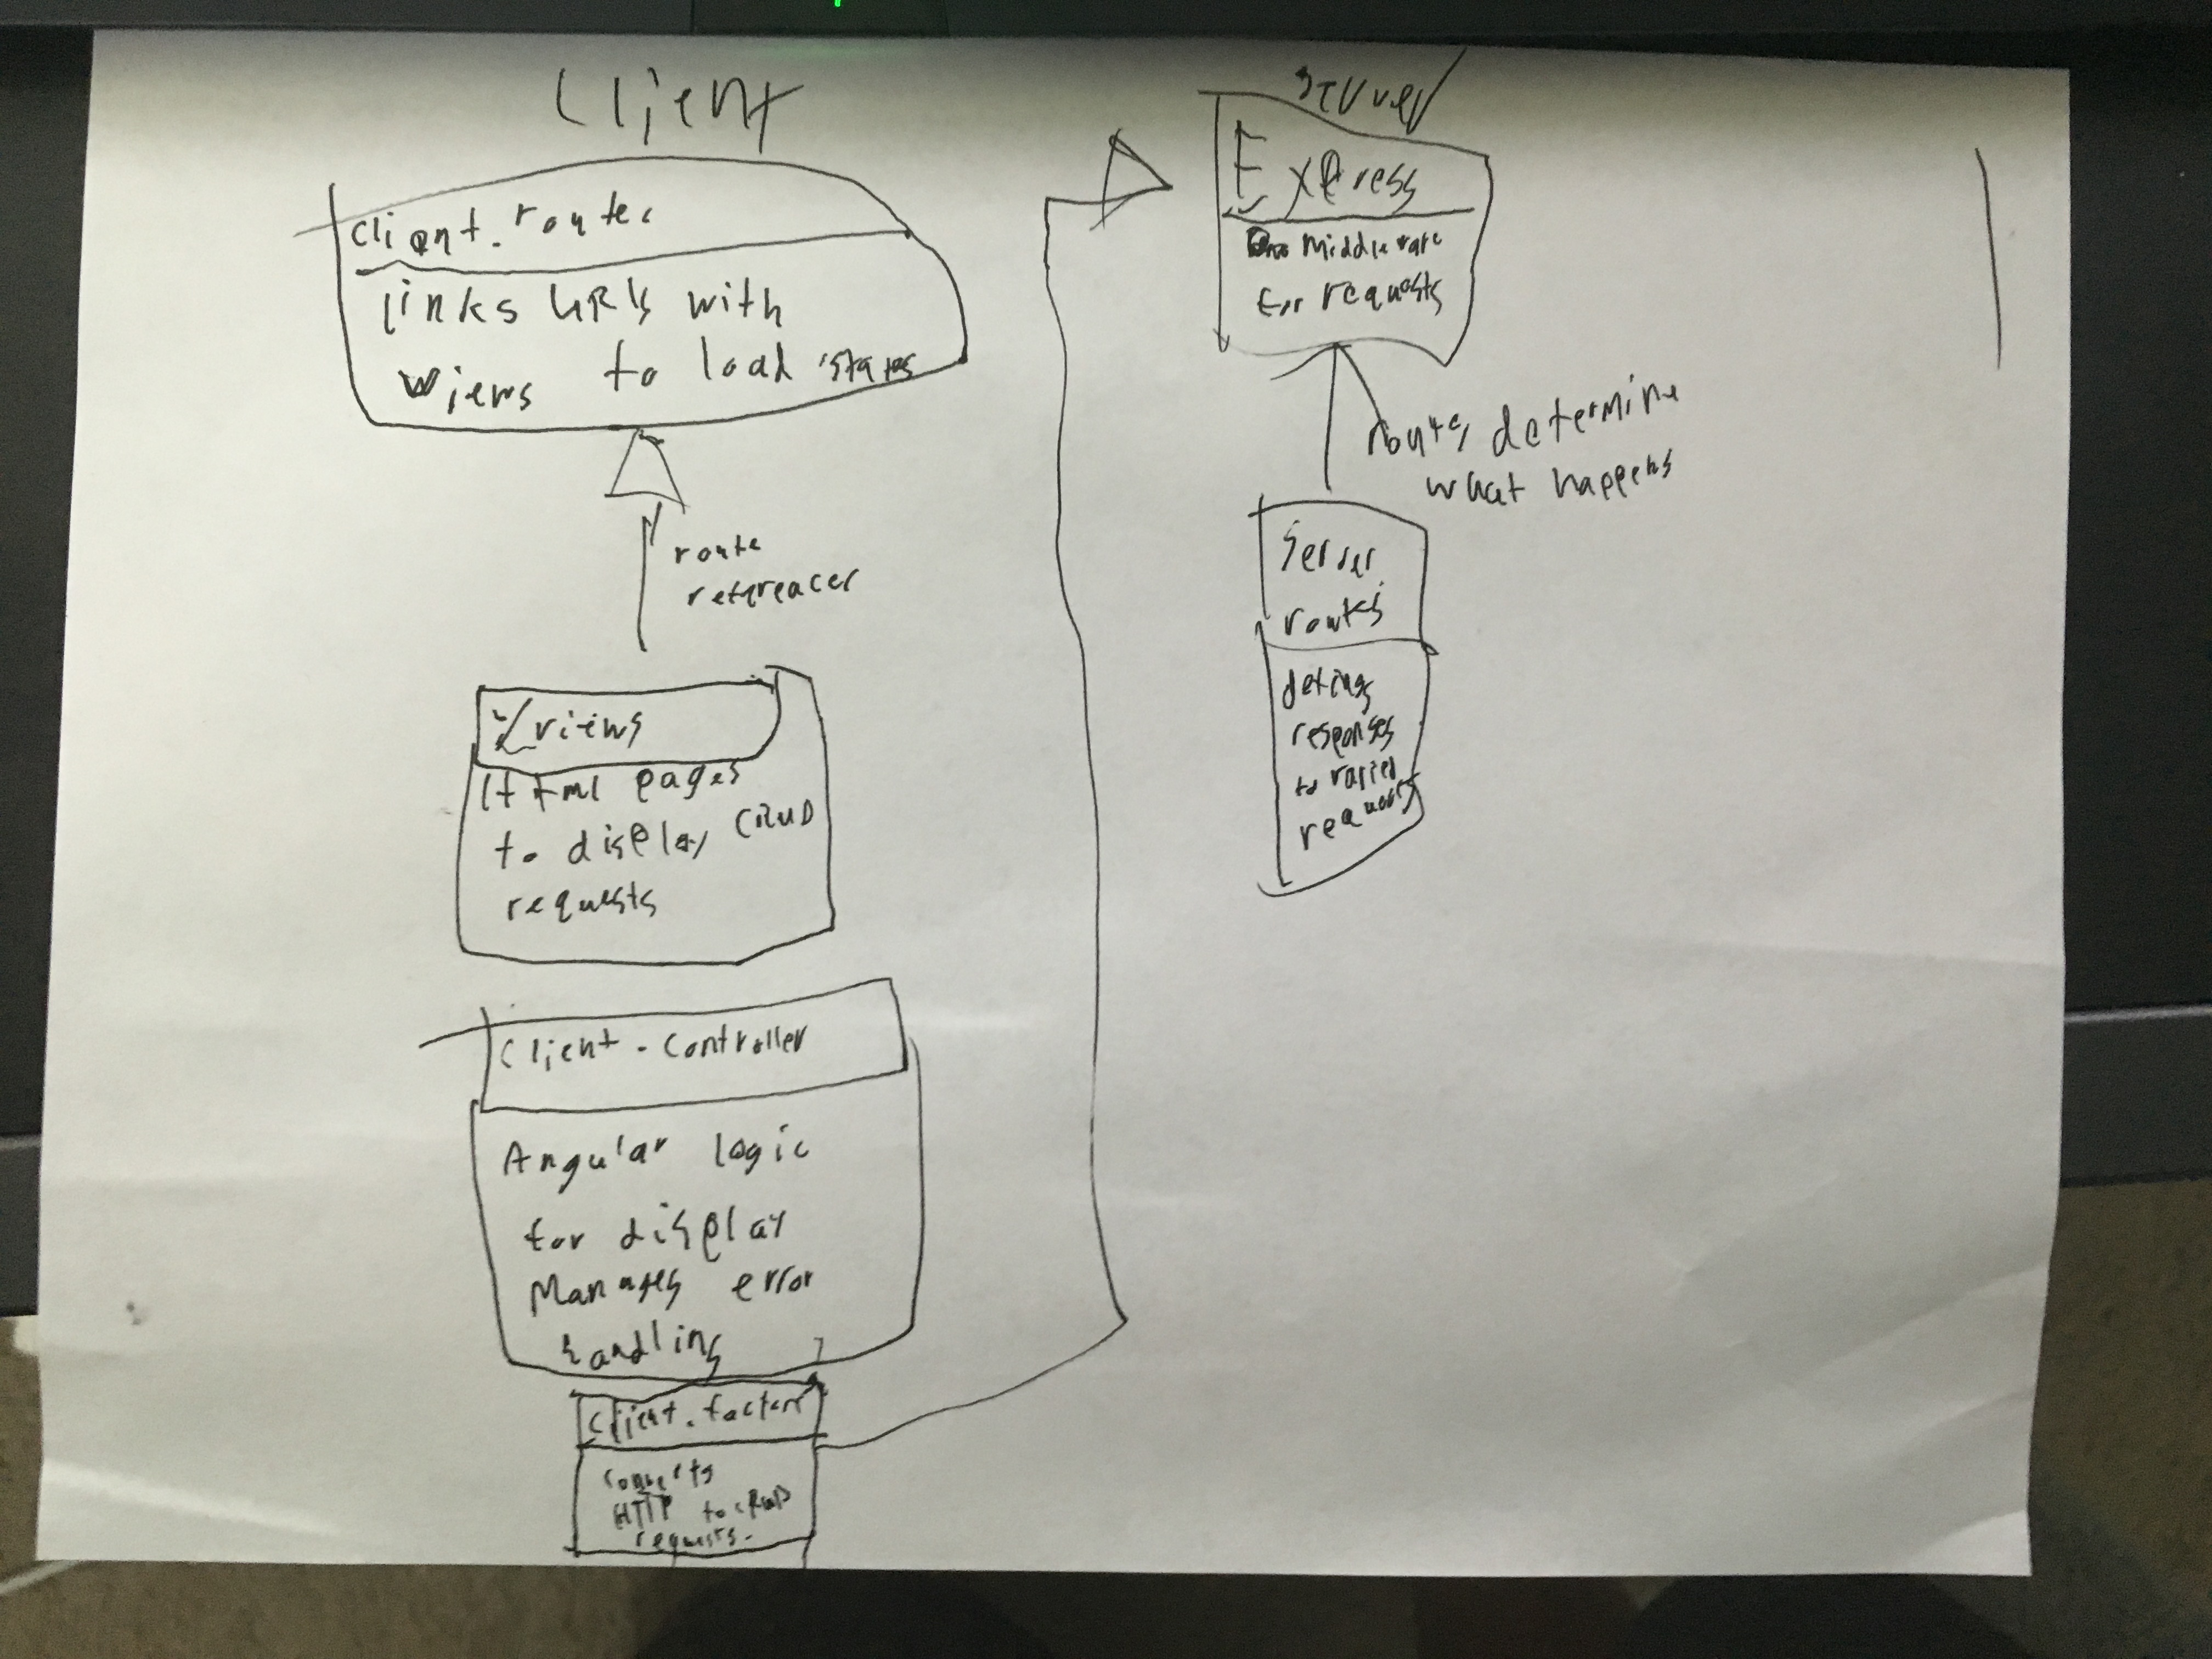 Client
client.router
links URLs with
views to load states
route
views
Html pages
to display CRUD
requests
Client-controller
Angular logic
for display
Manages error
handling
Client.factory
HTTP
requests.
Express
middleware
for requests
routes determine
what happens
Server
routes
defines
responses
to varied
requests